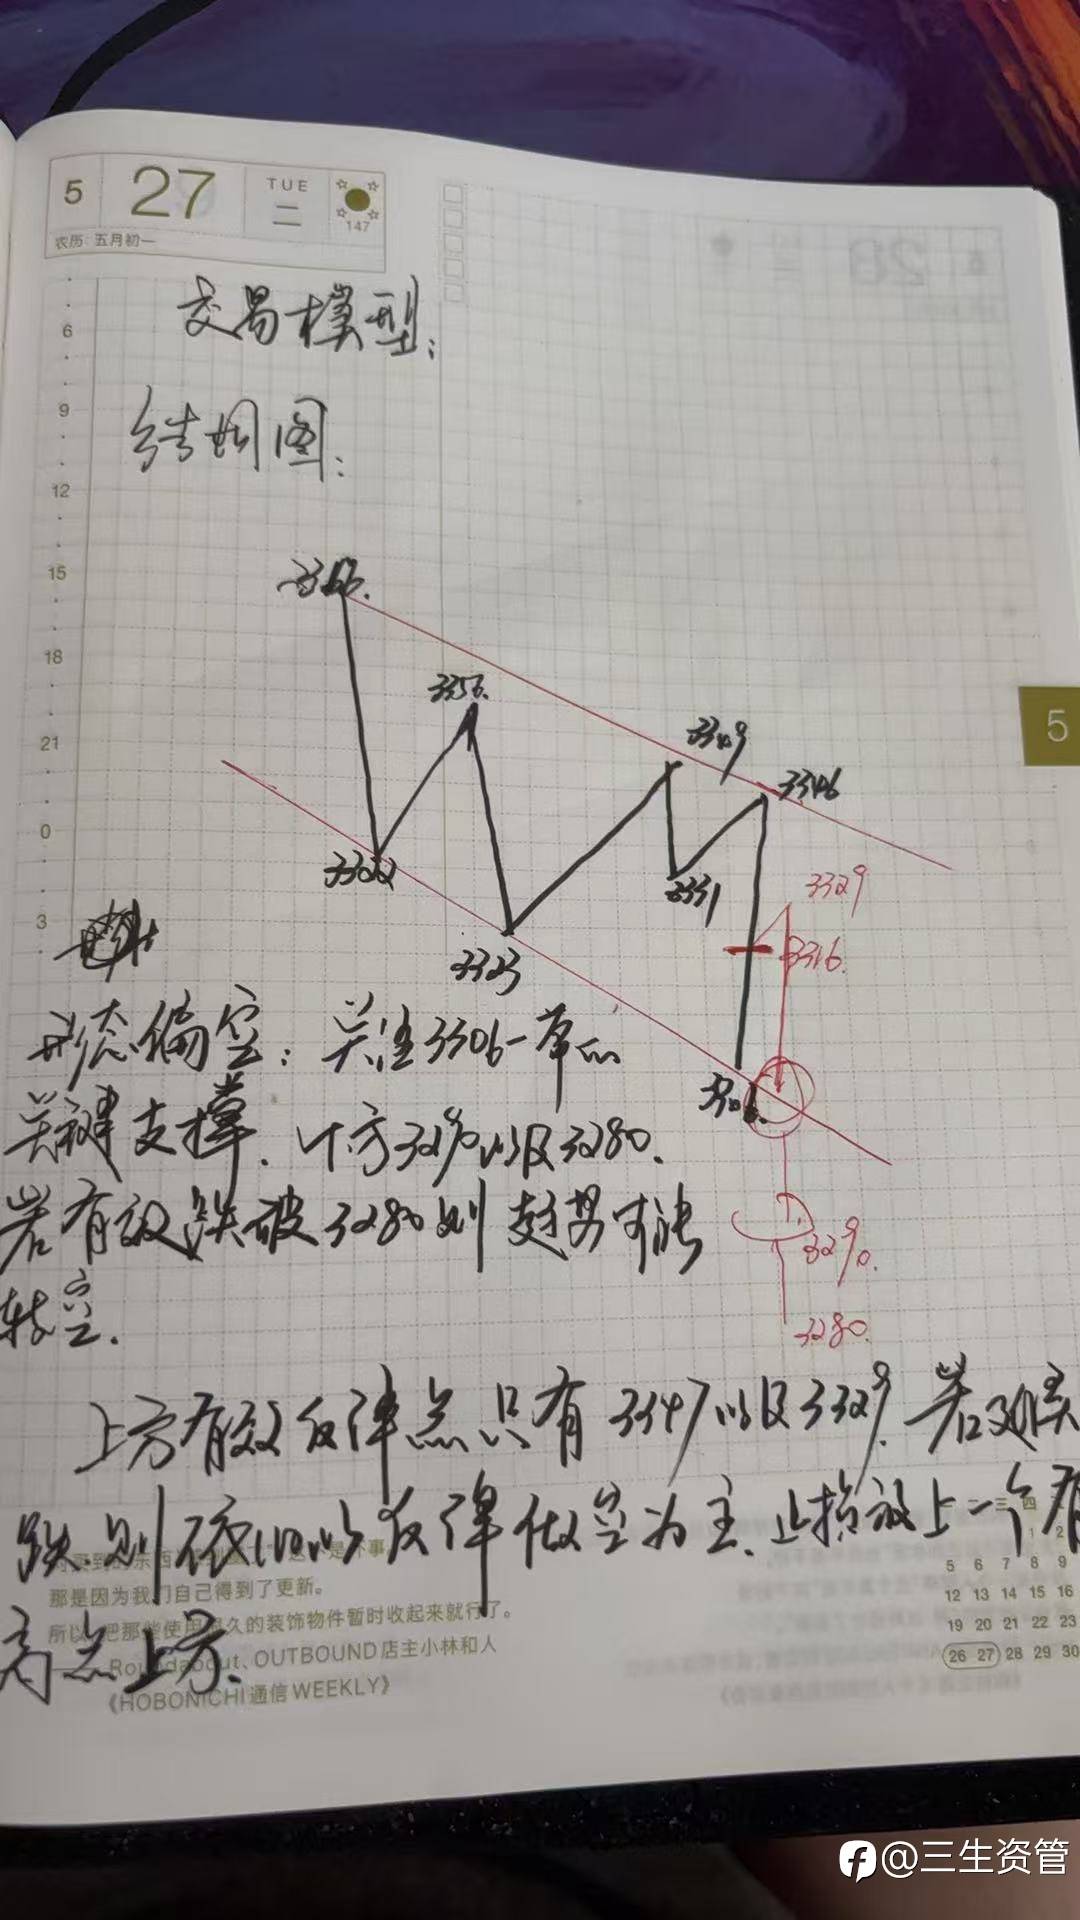 5 27 TUE 二
147
农历: 五月初一
交易模型:
6
结构图:
9
12
15
18
21
0
3
3356.
3349
3346
3322
3331
3323
3329
3316.
3306.
3290.
3280.
5
形态偏空: 关注3306一带的
关键支撑. 下方3290以及3280.
若有效跌破3280则趋势可能
转空.
上方有效反弹点只有3347以及3329. 若延续
跌.则依旧以反弹做空为主.止损放上一个有
高点上方.
那是因为我们自己得到了更新。
所以 把那些使用 久的装饰物件暂时收起来就行了。
Roundabout、OUTBOUND店主小林和人
《HOBONICHI通信WEEKLY》
三 四
1 2
5 6 7 8 9
12 13 14 15 16
19 20 21 22 23
26 27 28 29 30
@三生资管